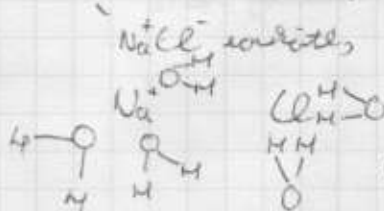 Na⁺Cl⁻
H
O H
Na⁺ Cl H H O
H O O H H H
H H O